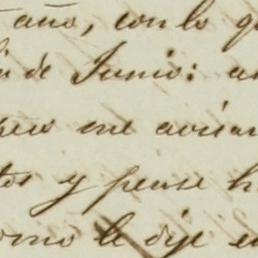 año, con lo q
de Junio: a
me avisar
tos y pense h
como le dije e